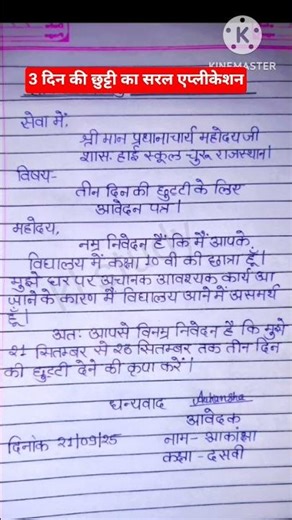 KINEMASTER
3 दिन की छुट्टी का सरल एप्लीकेशन
सेवा में,
श्री मान प्रधानाचार्य महोदय जी
शास. हाई स्कूल चुरू राजस्थान।
विषय-
तीन दिन की छुट्टी के लिए
आवेदन पत्र।
महोदय,
नम्र निवेदन हैं कि मैं आपके
विद्यालय में कक्षा 10 वी की छात्रा हूँ।
मुझे घर पर अचानक आवश्यक कार्य आ
जाने के कारण मैं विद्यालय आने में असमर्थ
हूँ।
अतः आपसे विनम्र निवेदन हैं कि मुझे
21 सितम्बर से 23 सितम्बर तक तीन दिन
की छुट्टी देने की कृपा करें।
धन्यवाद Aakansha
आवेदक
दिनांक 21/09/25 नाम- आकांक्षा
कक्षा - दसवी